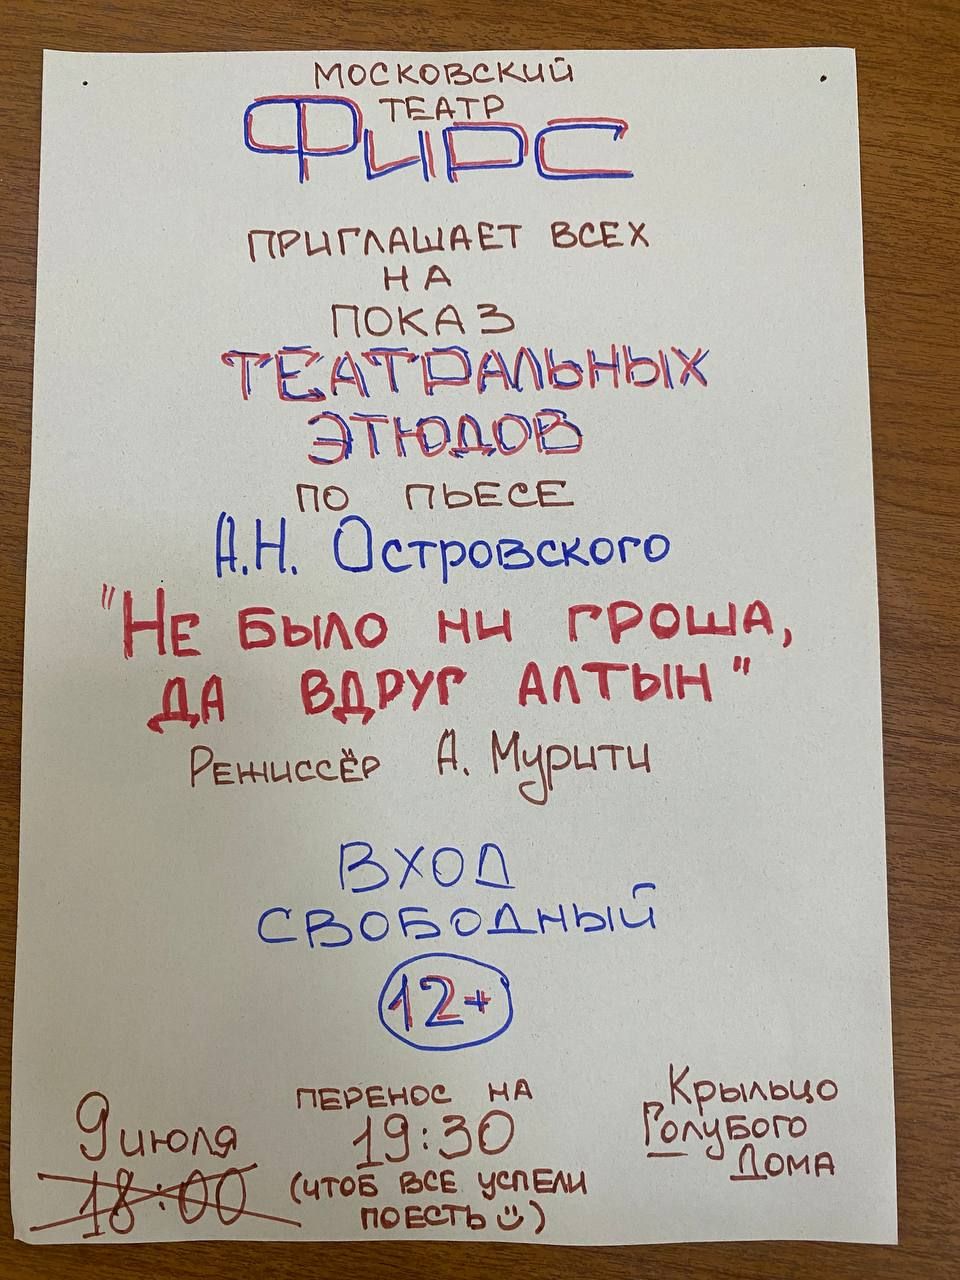 МОСКОВСКИЙ
ТЕАТР
ФИРС
ПРИГЛАШАЕТ ВСЕХ
НА
ПОКАЗ
ТЕАТРАЛЬНЫХ
ЭТЮДОВ
ПО ПЬЕСЕ
А.Н. Островского
"НЕ БЫЛО НИ ГРОША,
ДА ВДРУГ АЛТЫН"
Режиссёр А. Мурити
ВХОД
СВОБОДНЫЙ
12+
9 июля
18:00
ПЕРЕНОС НА
19:30
(ЧТОБ ВСЕ УСПЕЛИ
ПОЕСТЬ)
Крыльцо
Голубого
Дома